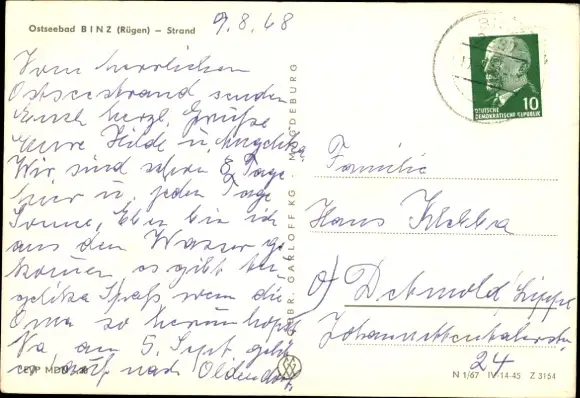 Ostseebad BINZ (Rügen) — Strand
9.8.68
Vom herrlichen
Ostseestrand senden
Euch herzl. Grüße
Eure Hilde u. Angelika
Wir sind schon 8 Tage
hier u. jeden Tage
Sonne, Eben bin ich
aus dem Wasser ge
kommen, es gibt An
gelika Spaß wenn die
Oma so herumhopst
Na am 5. Sept. geht
es auf nach Oldendorf
GEBR. GARLOFF KG - MAGDEBURG
10
DEUTSCHE
DEMOKRATISCHE REPUBLIK
Familie
Hans
Detmold/Lippe
24
N 1/67 IV-14-45 Z 3154